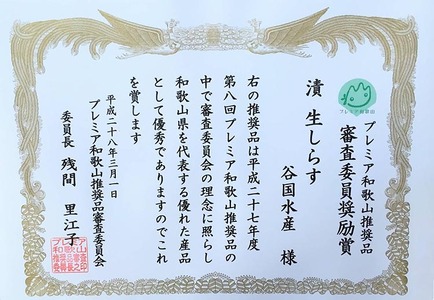 プレミア和歌山推奨品
審査委員奨励賞
漬 生しらす
谷国水産 様
右の推奨品は平成二十七年度
第八回プレミア和歌山推奨品の
中で審査委員会の理念に照らし
和歌山県を代表する優れた産品
として優秀でありますのでこれ
を賞します
平成二十八年三月一日
プレミア和歌山推奨品審査委員会
委員長 残間 里江子
プレミア和歌山